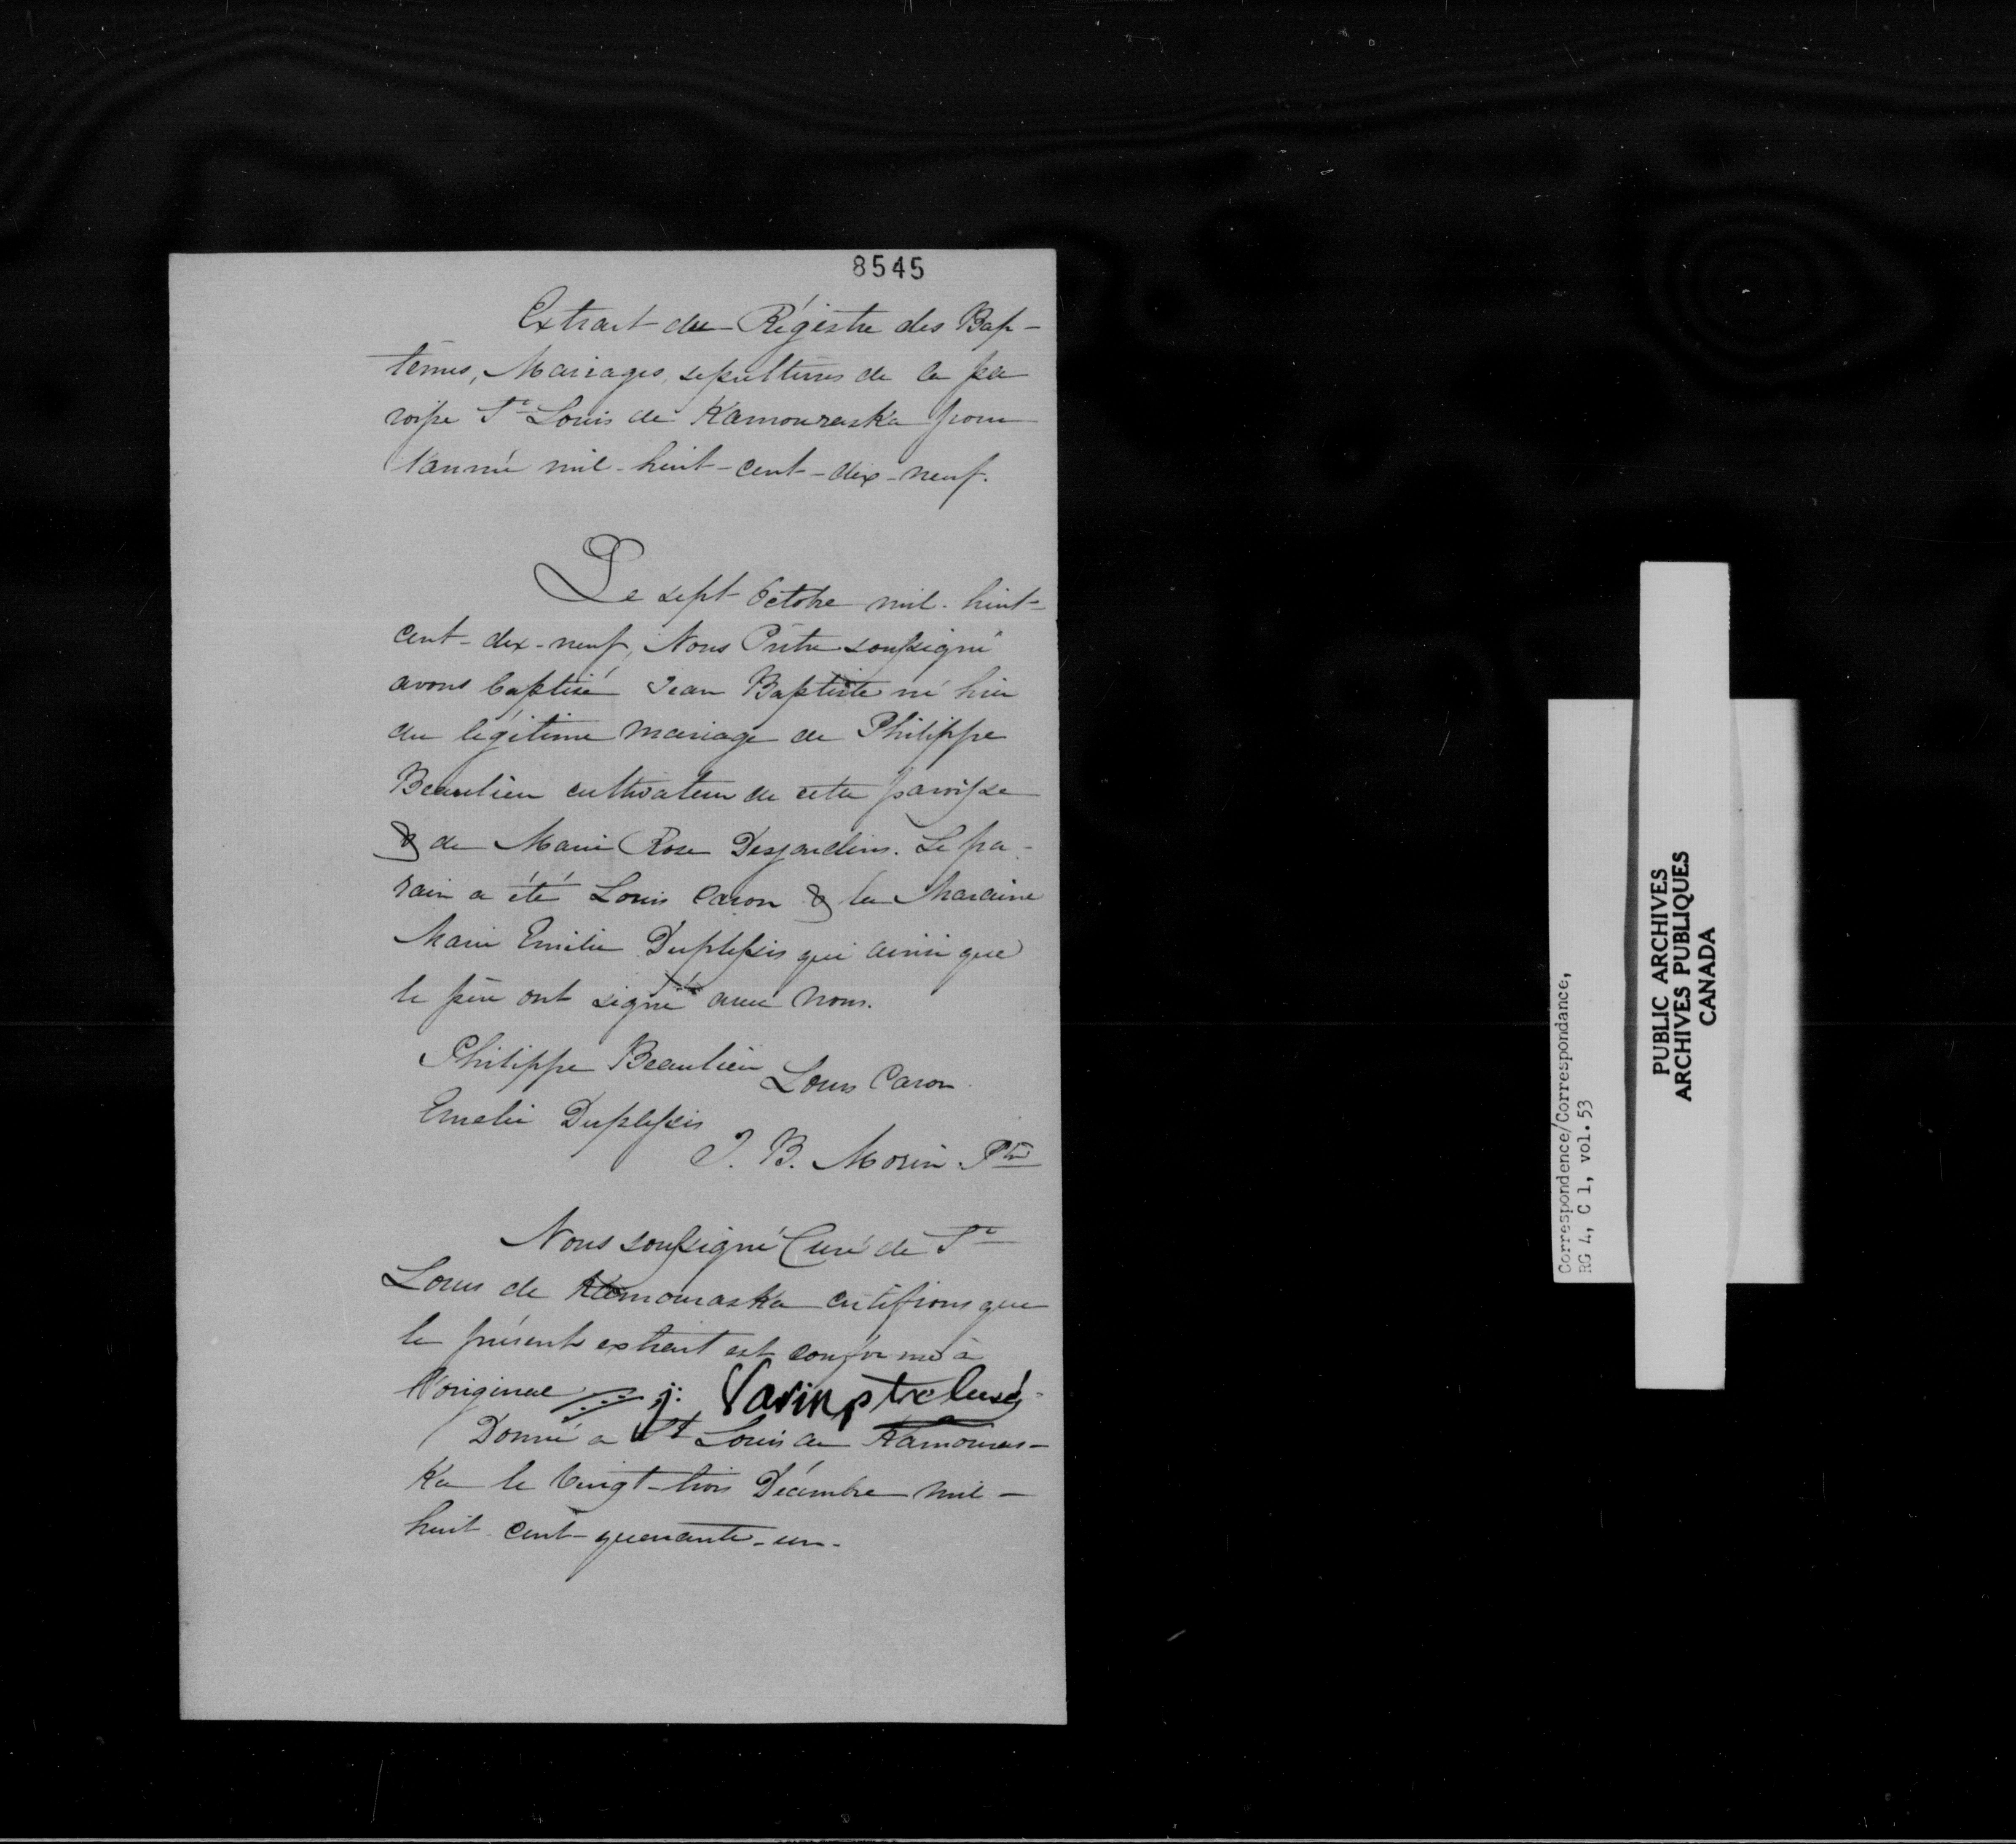 8545
Extrait du Régistre des Bap-
têmes, Mariages, sepultures de la pa
roisse St Louis de Kamouraska pour
l'année mil-huit-cent-dix-neuf.
Le sept Octobre mil-huit-
cent-dix-neuf, Nous Prêtre soussigné
avons baptisé Jean Baptiste né hier
du légitime mariage de Philippe
Beaulieu cultivateur de cette paroisse
& de Marie Rose Desjardins. Le pa-
rain a été Louis Caron & la Maraine
Marie Emilie Duplessis qui ainsi que
le père ont signé avec nous.
Philippe Beaulieu Louis Caron
Emelie Duplessis
J. B. Morin Ptre
Nous soussigné Curé de St
Louis de Kamouraska certifions que
le présent extrait est conforme à
l'original j: Varin ptre Curé
Donné a St Louis de Kamouras-
Ka le Vingt-trois Décembre mil-
huit cent-quarante-un.
Correspondence/Correspondance,
RG 4, C 1, vol. 53
PUBLIC ARCHIVES
ARCHIVES PUBLIQUES
CANADA